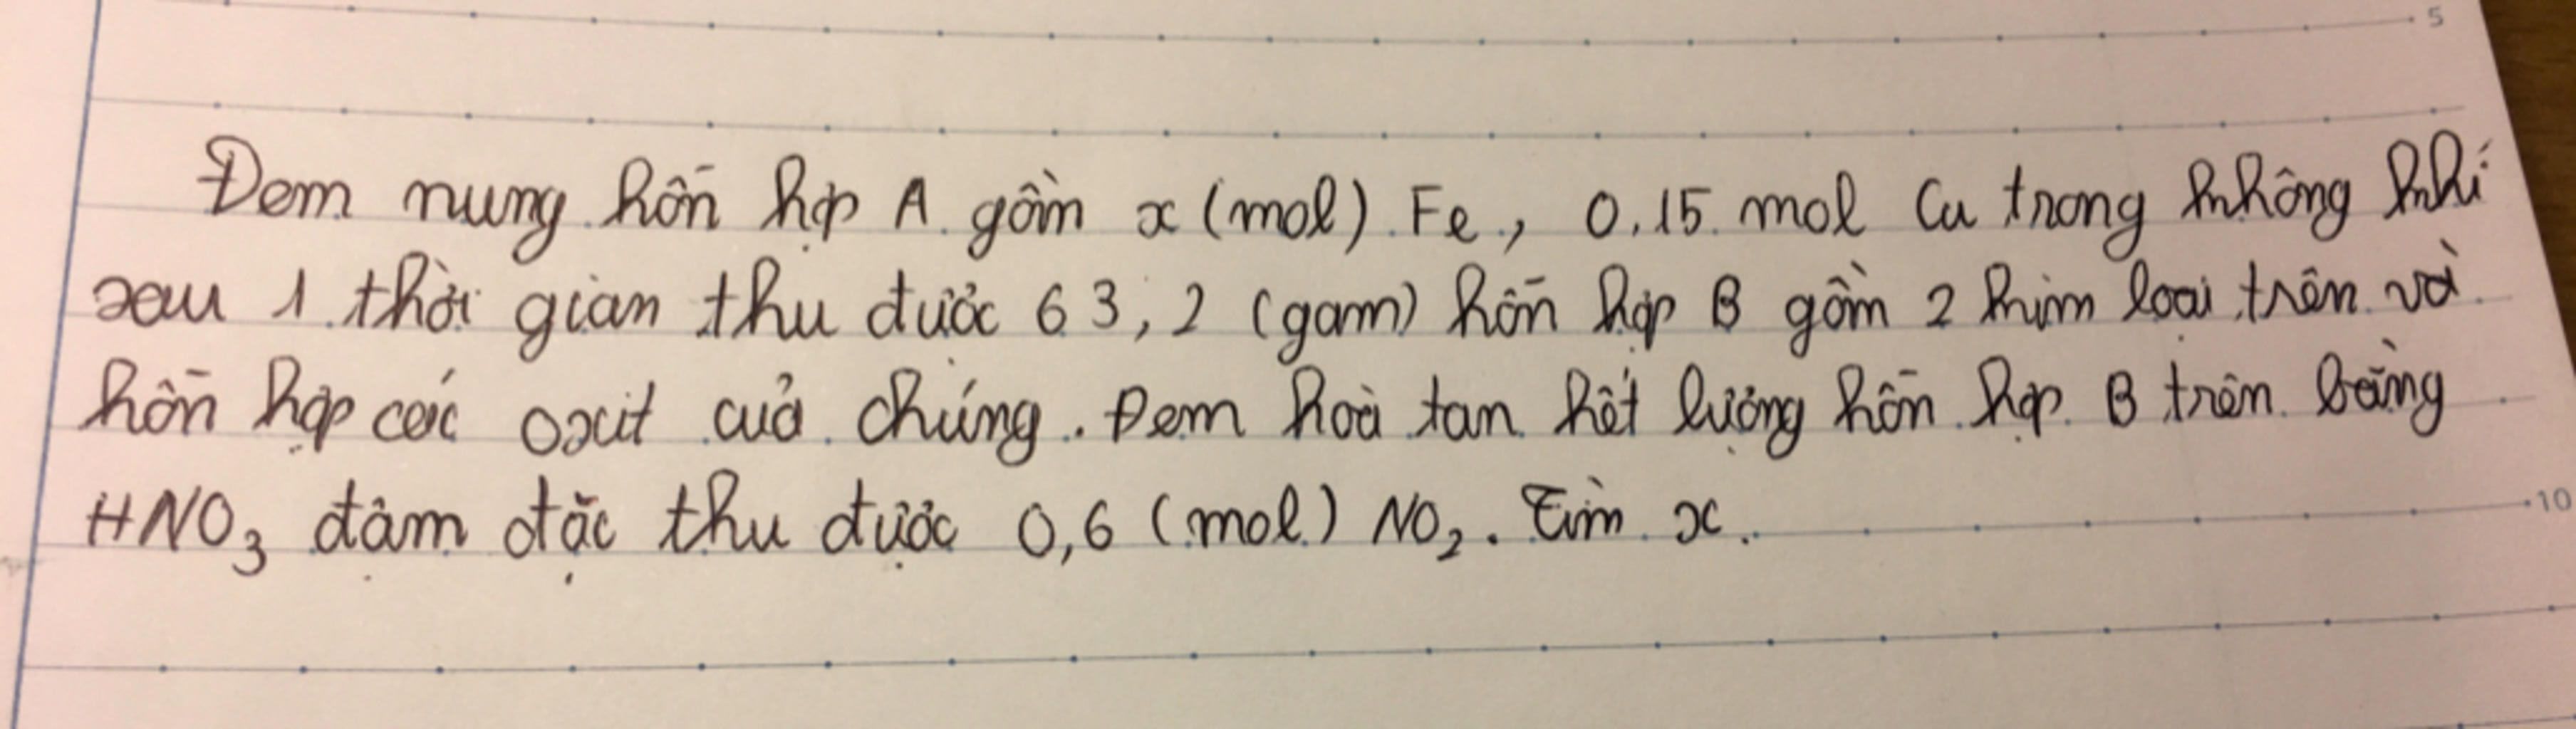 5
Đem nung hỗn hợp A gồm x (mol) Fe, 0.15 mol Cu trong không khí
sau 1 thời gian thu được 63,2 (gam) hỗn hợp B gồm 2 kim loại trên và
hỗn hợp các oxit của chúng. Đem hoà tan hết lượng hỗn hợp B trên bằng
HNO₃ đậm đặc thu được 0,6 (mol) NO₂. Tìm x.
10